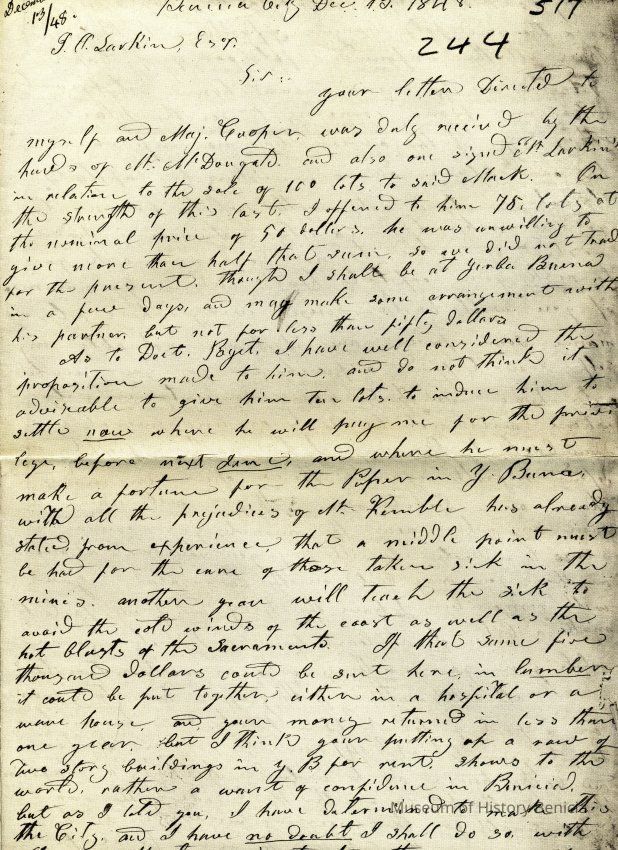 Decem
13/48.
Benicia City Dec. 13. 1848.
517
244
T. O. Larkin, Esqr.
Sir..
your letter Directed to
myself and Maj. Cooper, was duly received by the
hands of Mr. McDougald. and also one signed Larkin
in relation to the sale of 100 lots to said Mack. On
the strength of this last, I offered to him 75. lots at
the nominal price of 50 dollars. he was unwilling to
give more than half that sum, so we did not trade
for the present, though I shall be at Yerba Buena
in a few days, and may make some arrangement with
his partner, but not for less than fifty dollars
As to Doct. I have well considered the
proposition made to him, and do not think it
adviseable to give him ten lots. to induce him to
settle now where he will pay me for the privi
lege, before next June, and where he must
make a fortune for the in Y. Buena,
with all the prejudices of Mr. Kemble has already
stated, from experience, that a middle point must
be had for the cure of those taken sick in the
mines. another year will teach the sick to
avoid the cold winds of the coast as well as the
hot blasts of the Sacramento. If that same five
thousand dollars could be sent here, in lumber,
it could be put together, either in a hospital or a
ware house, and your money returned in less than
one year, but I think your putting up a row of
two story buildings in Y B for rent, shows to the
world, rather a want of confidence in Benicia,
but as I told you, I have determined to make this
the City, and I have no doubt I shall do so, with
Museum of History Benicia